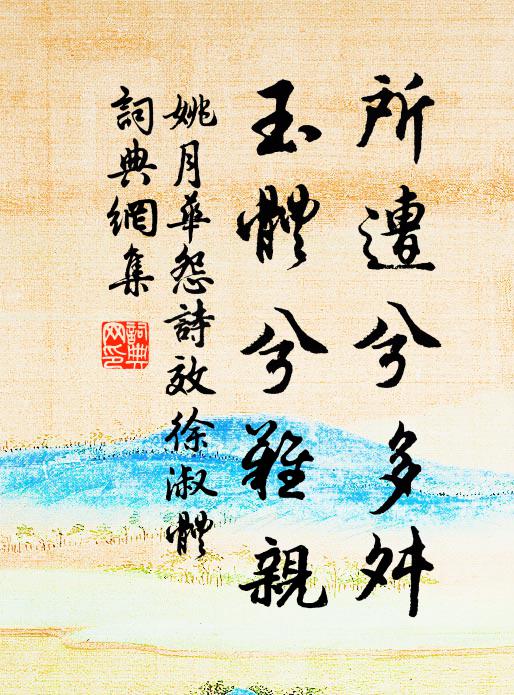 所遭兮多舛
玉體兮難親
姚月華怨詩效徐淑體
詞典網集
詞典網印